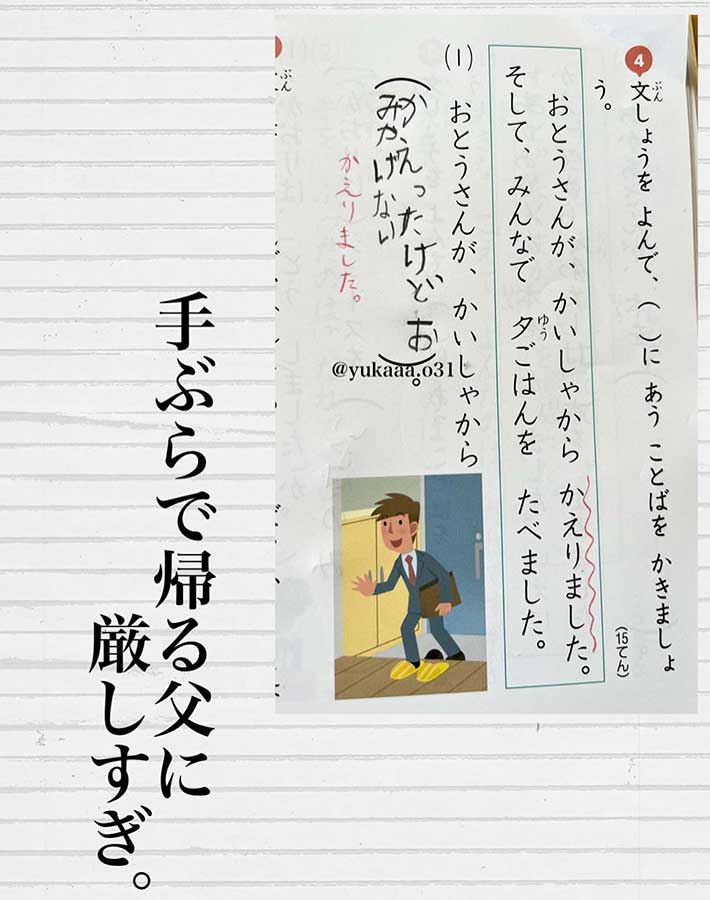 4 文しょうを よんで、( )に あう ことばを かきましょ
ぶん
う。
(15てん)
おとうさんが、かいしゃから かえりました。
そして、みんなで 夕ごはんを たべました。
ゆう
(1) おとうさんが、かいしゃから
(かえったけど お
みやげない)。
かえりました。
ぶん
@yukaaa.o31
手ぶらで帰る父に
厳しすぎ。